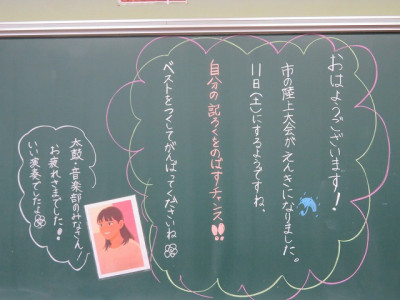 おはようございます!
市の陸上大会がえんきになりました。
11日(土)にするようですね、
自分の記ろくをのばすチャンス!!
ベストをつくしてがんばってくださいね
太鼓・音楽部のみなさん!
お疲れさまでした!
いい演奏でしたよ